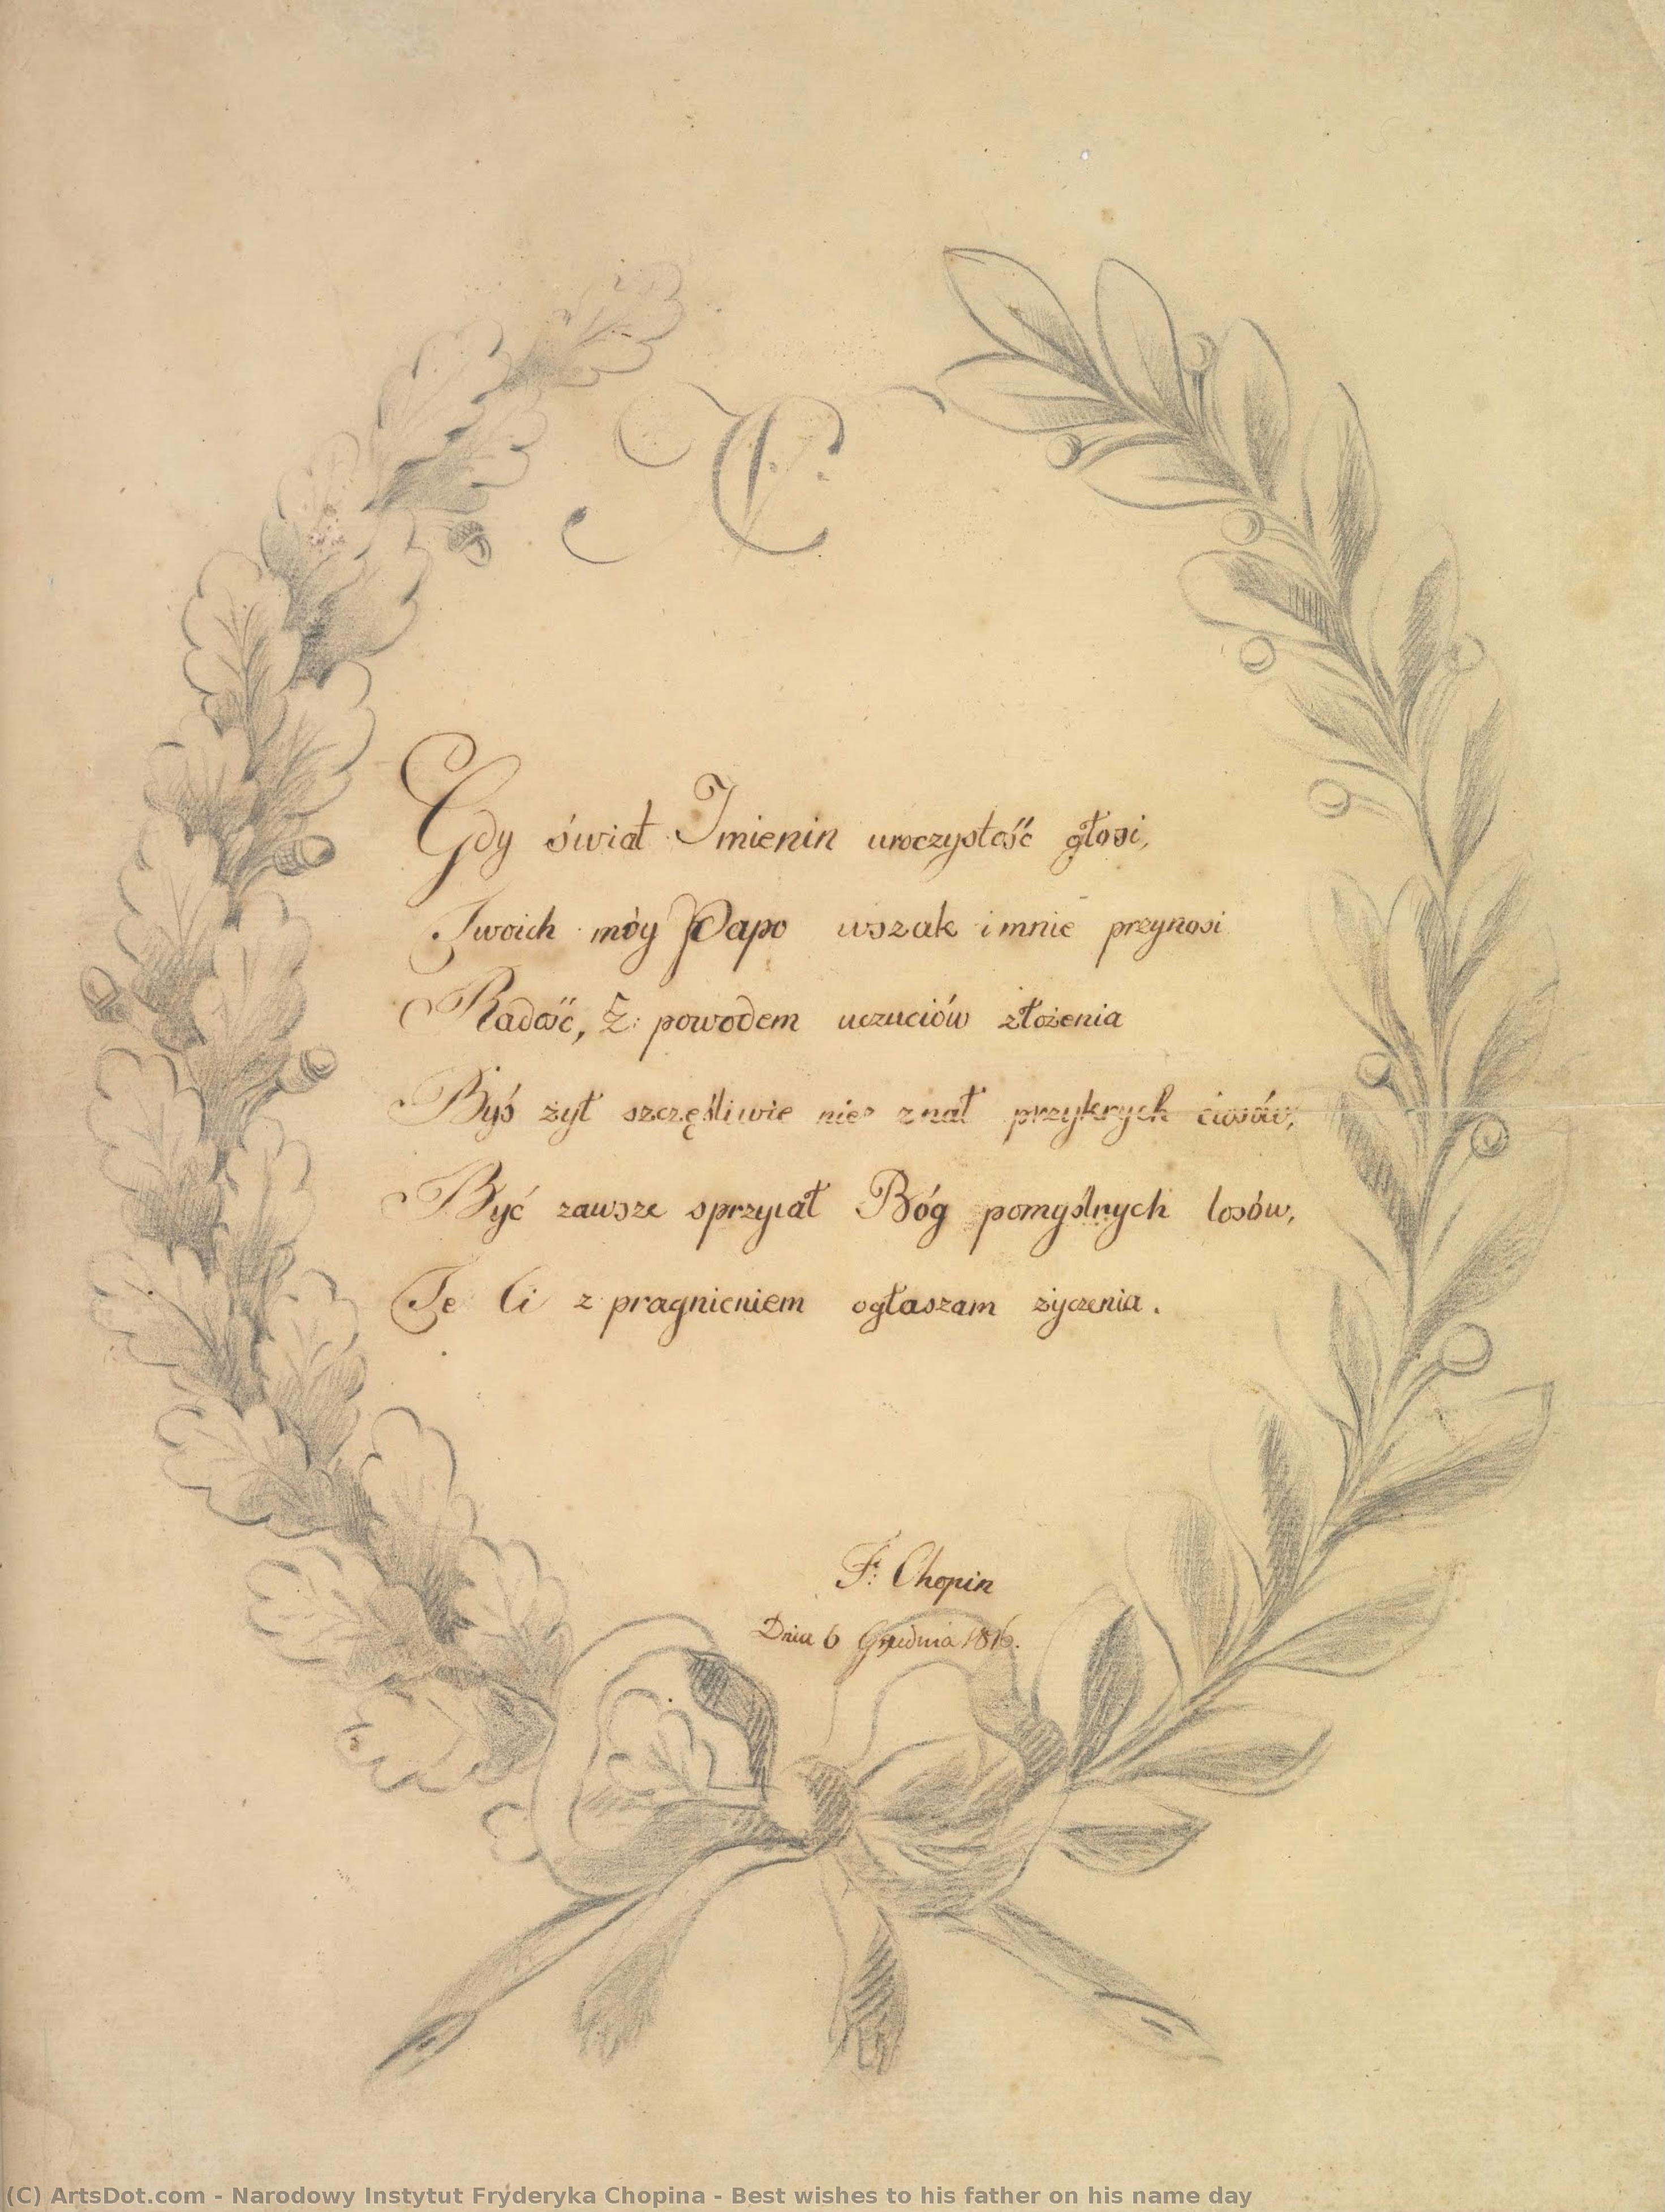 C
Gdy świat Imienin uroczystość głosi,
Twoich móy Papo wszak i mnie przynosi
Radość, Z: powodem uczuciów złożenia
Byś żył szczęśliwie nie znał przykrych ciosów,
Być zawsze sprzyiał Bóg pomyślnych losów,
Te Ci z pragnieniem ogłaszam życzenia.
F: Chopin
Dnia 6 Grudnia 1816.
(C) ArtsDot.com - Narodowy Instytut Fryderyka Chopina - Best wishes to his father on his name day